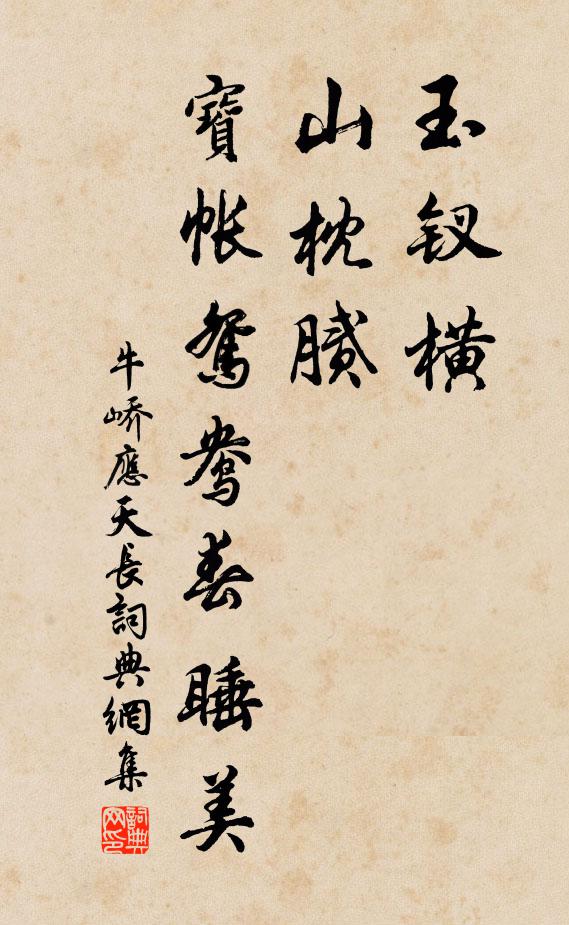 玉钗橫
山枕膩
寶帳鴛鴦春睡美
牛嶠應天長詞典網集
詞典網印